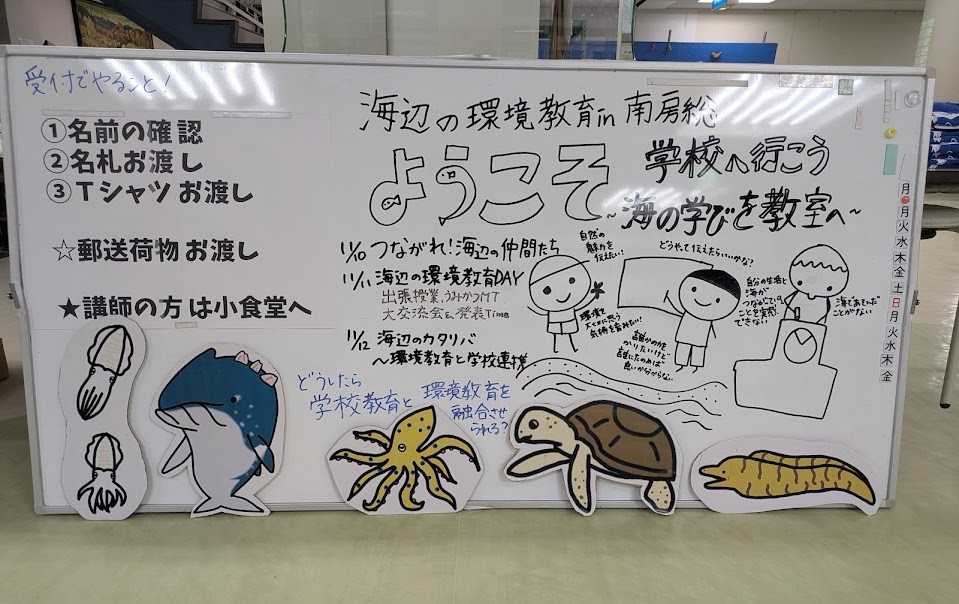 受付でやること！
①名前の確認
②名札お渡し
③Tシャツお渡し
☆郵送荷物お渡し
★講師の方は小食堂へ
海辺の環境教育in南房総
ようこそ
学校へ行こう
～海の学びを教室へ～
11/10 つながれ！海辺の仲間たち
11/11 海辺の環境教育DAY
出張授業、うみかつMT
大交流会&発表Time
11/12 海辺のカタリバ
～環境教育と学校連携
自然の
魅力を
伝えたい！
環境を
大切に思う
気持を育みたい！
どうやって伝えたらいいかな？
誰かの力を
かりたいけど
誰にたのめば
良いか分からない
自分の生活と
海が
つながっている
ことを実感
できない
海であそんだ
ことがない
どうしたら
学校教育と
環境教育を
融合させ
られる？
月
月
火
水
木
金
土
日
月
火
水
木
金